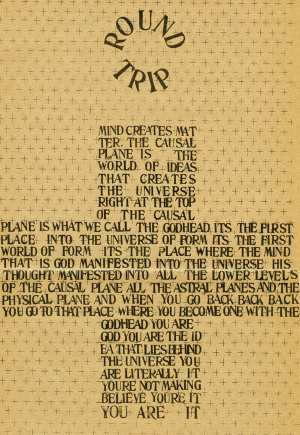 ROUND
TRIP
MIND CREATES MAT
TER. THE CAUSAL
PLANE IS THE
WORLD OF IDEAS
THAT CREATES
THE UNIVERSE
RIGHT AT THE TOP
OF THE CAUSAL
PLANE IS WHAT WE CALL THE GODHEAD. ITS THE FIRST
PLACE INTO THE UNIVERSE OF FORM ITS THE FIRST
WORLD OF FORM ITS THE PLACE WHERE THE MIND
THAT IS GOD MANIFESTED INTO THE UNIVERSE HIS
THOUGHT MANIFESTED INTO ALL THE LOWER LEVELS
OF THE CAUSAL PLANE ALL THE ASTRAL PLANES AND THE
PHYSICAL PLANE AND WHEN YOU GO BACK BACK BACK
YOU GO TO THAT PLACE WHERE YOU BECOME ONE WITH THE
GODHEAD YOU ARE
GOD YOU ARE THE ID
EA THAT LIES BEHIND
THE UNIVERSE YOU
ARE LITERALLY IT
YOURE NOT MAKING
BELIEVE YOURE IT
YOU ARE IT